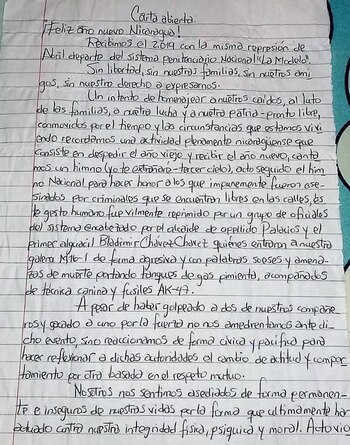 Carta abierta.
¡Feliz año nuevo Nicaragua!
Recibimos el 2,019 con la misma represión de
Abril departe del sistema penitenciario Nacional "La Modelo".
Sin libertad, sin nuestras familias, sin nuestros ami
gos, sin nuestro derecho a expresarnos.
Un intento de homenajear a nuestros caídos, al luto
de las familias, a nuestra lucha y a nuestra patria-pronto libre,
conmovidos por el tiempo y las circunstancias que estamos vivi
endo recordamos una actividad plenamente nicaragüense que
consiste en despedir el año viejo y recibir el año nuevo, canta
mos un himno (yo te extrañaré-tercer cielo), acto seguido el him
no Nacional para hacer honor a los que impunemente fueron ase-
sinados por criminales que se encuentran libres en las calles, és
te gesto humano fue vilmente reprimido por un grupo de oficiales
del sistema encabezado por el alcaide de apellido Palacios y el
primer alguacil Bladimir Chávez Chavez quiénes entraron a nuestra
galera M16-1 de forma agresiva y con palabras soeses y amena-
zas de muerte portando tanques de gas pimienta, acompañados
de técnica canina y fusiles AK-47.
A pesar de haber golpeado a dos de nuestros compañe
ros y sacado a uno por la fuerza no nos amedrentamos ante di-
cho evento, sino reaccionamos de forma cívica y pacífica para
hacer reflexionar a dichas autoridades el cambio de actitud y compor
tamiento por otra basada en el respeto mutuo.
Nosotros nos sentimos asediados de forma permanen-
te e inseguros de nuestras vidas por la forma que ultimamente han
actuado contra nuestra integridad física, psíquica y moral. Acto vio